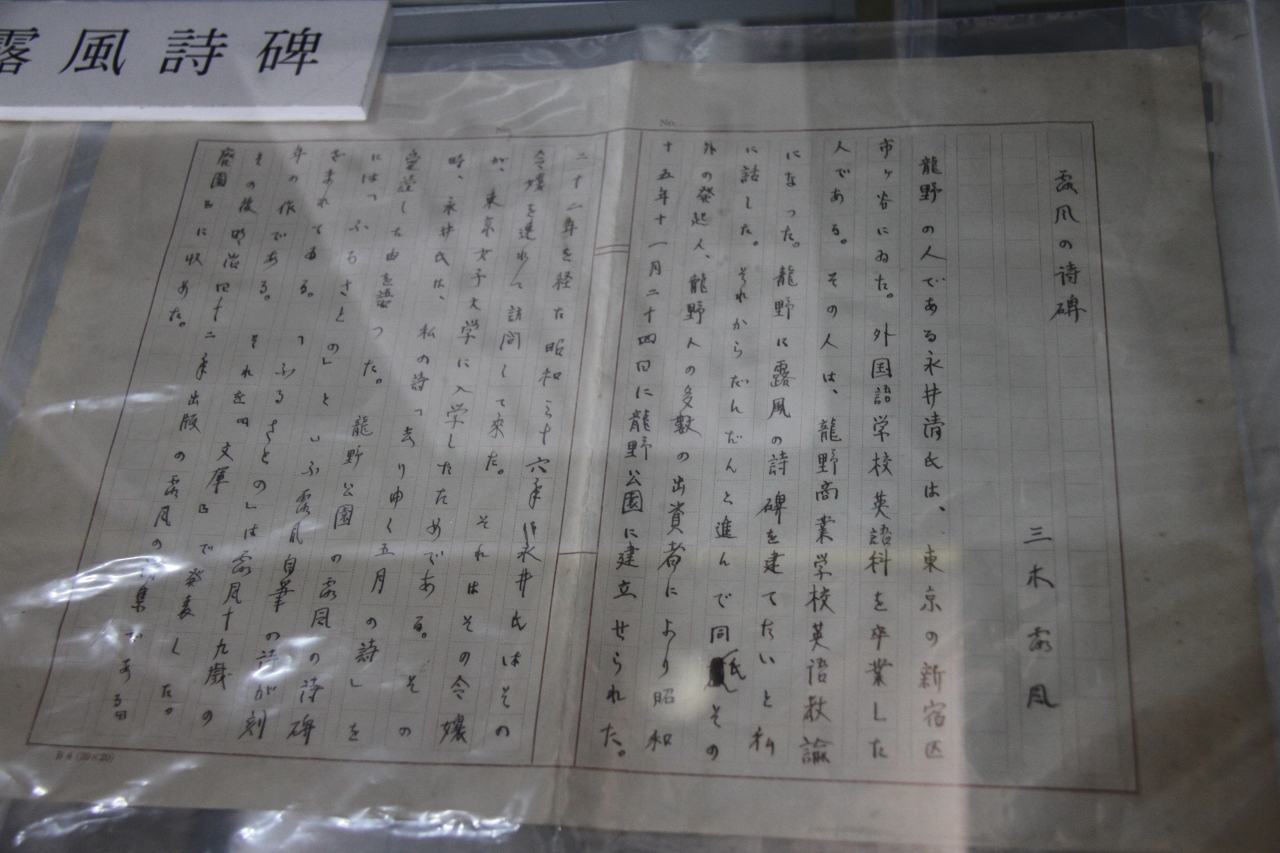 露風詩碑
No.
No.
露風の詩碑
三木露風
龍野の人である永井清氏は、東京の新宿区
市ヶ谷にゐた。外国語学校英語科を卒業した
人である。その人は、龍野商業学校英語教諭
になった。龍野に露風の詩碑を建てたいと私
に話した。それからだんだんと進んで同氏その
外の発起人、龍野人の多数の出資者により昭和
十五年十一月二十四日に龍野公園に建立せられた。
二十二年を経た昭和三十六年に永井氏はその
令嬢を連れて訪問して来た。それはその令嬢
が、東京女子大学に入学したためである。その
時、永井氏は、私の詩「去り申く五月の詩」を
愛誦した由を語った。龍野公園の露風の詩碑
には「ふるさとの」といふ露風自筆の詩が刻
をまれてゐる。「ふるさとの」は露風十九歳の
年の作である。それを『文庫』で発表した。
その後明治四十二年出版の露風の詩集である『
廃園』に収めた。
B4(20×20)